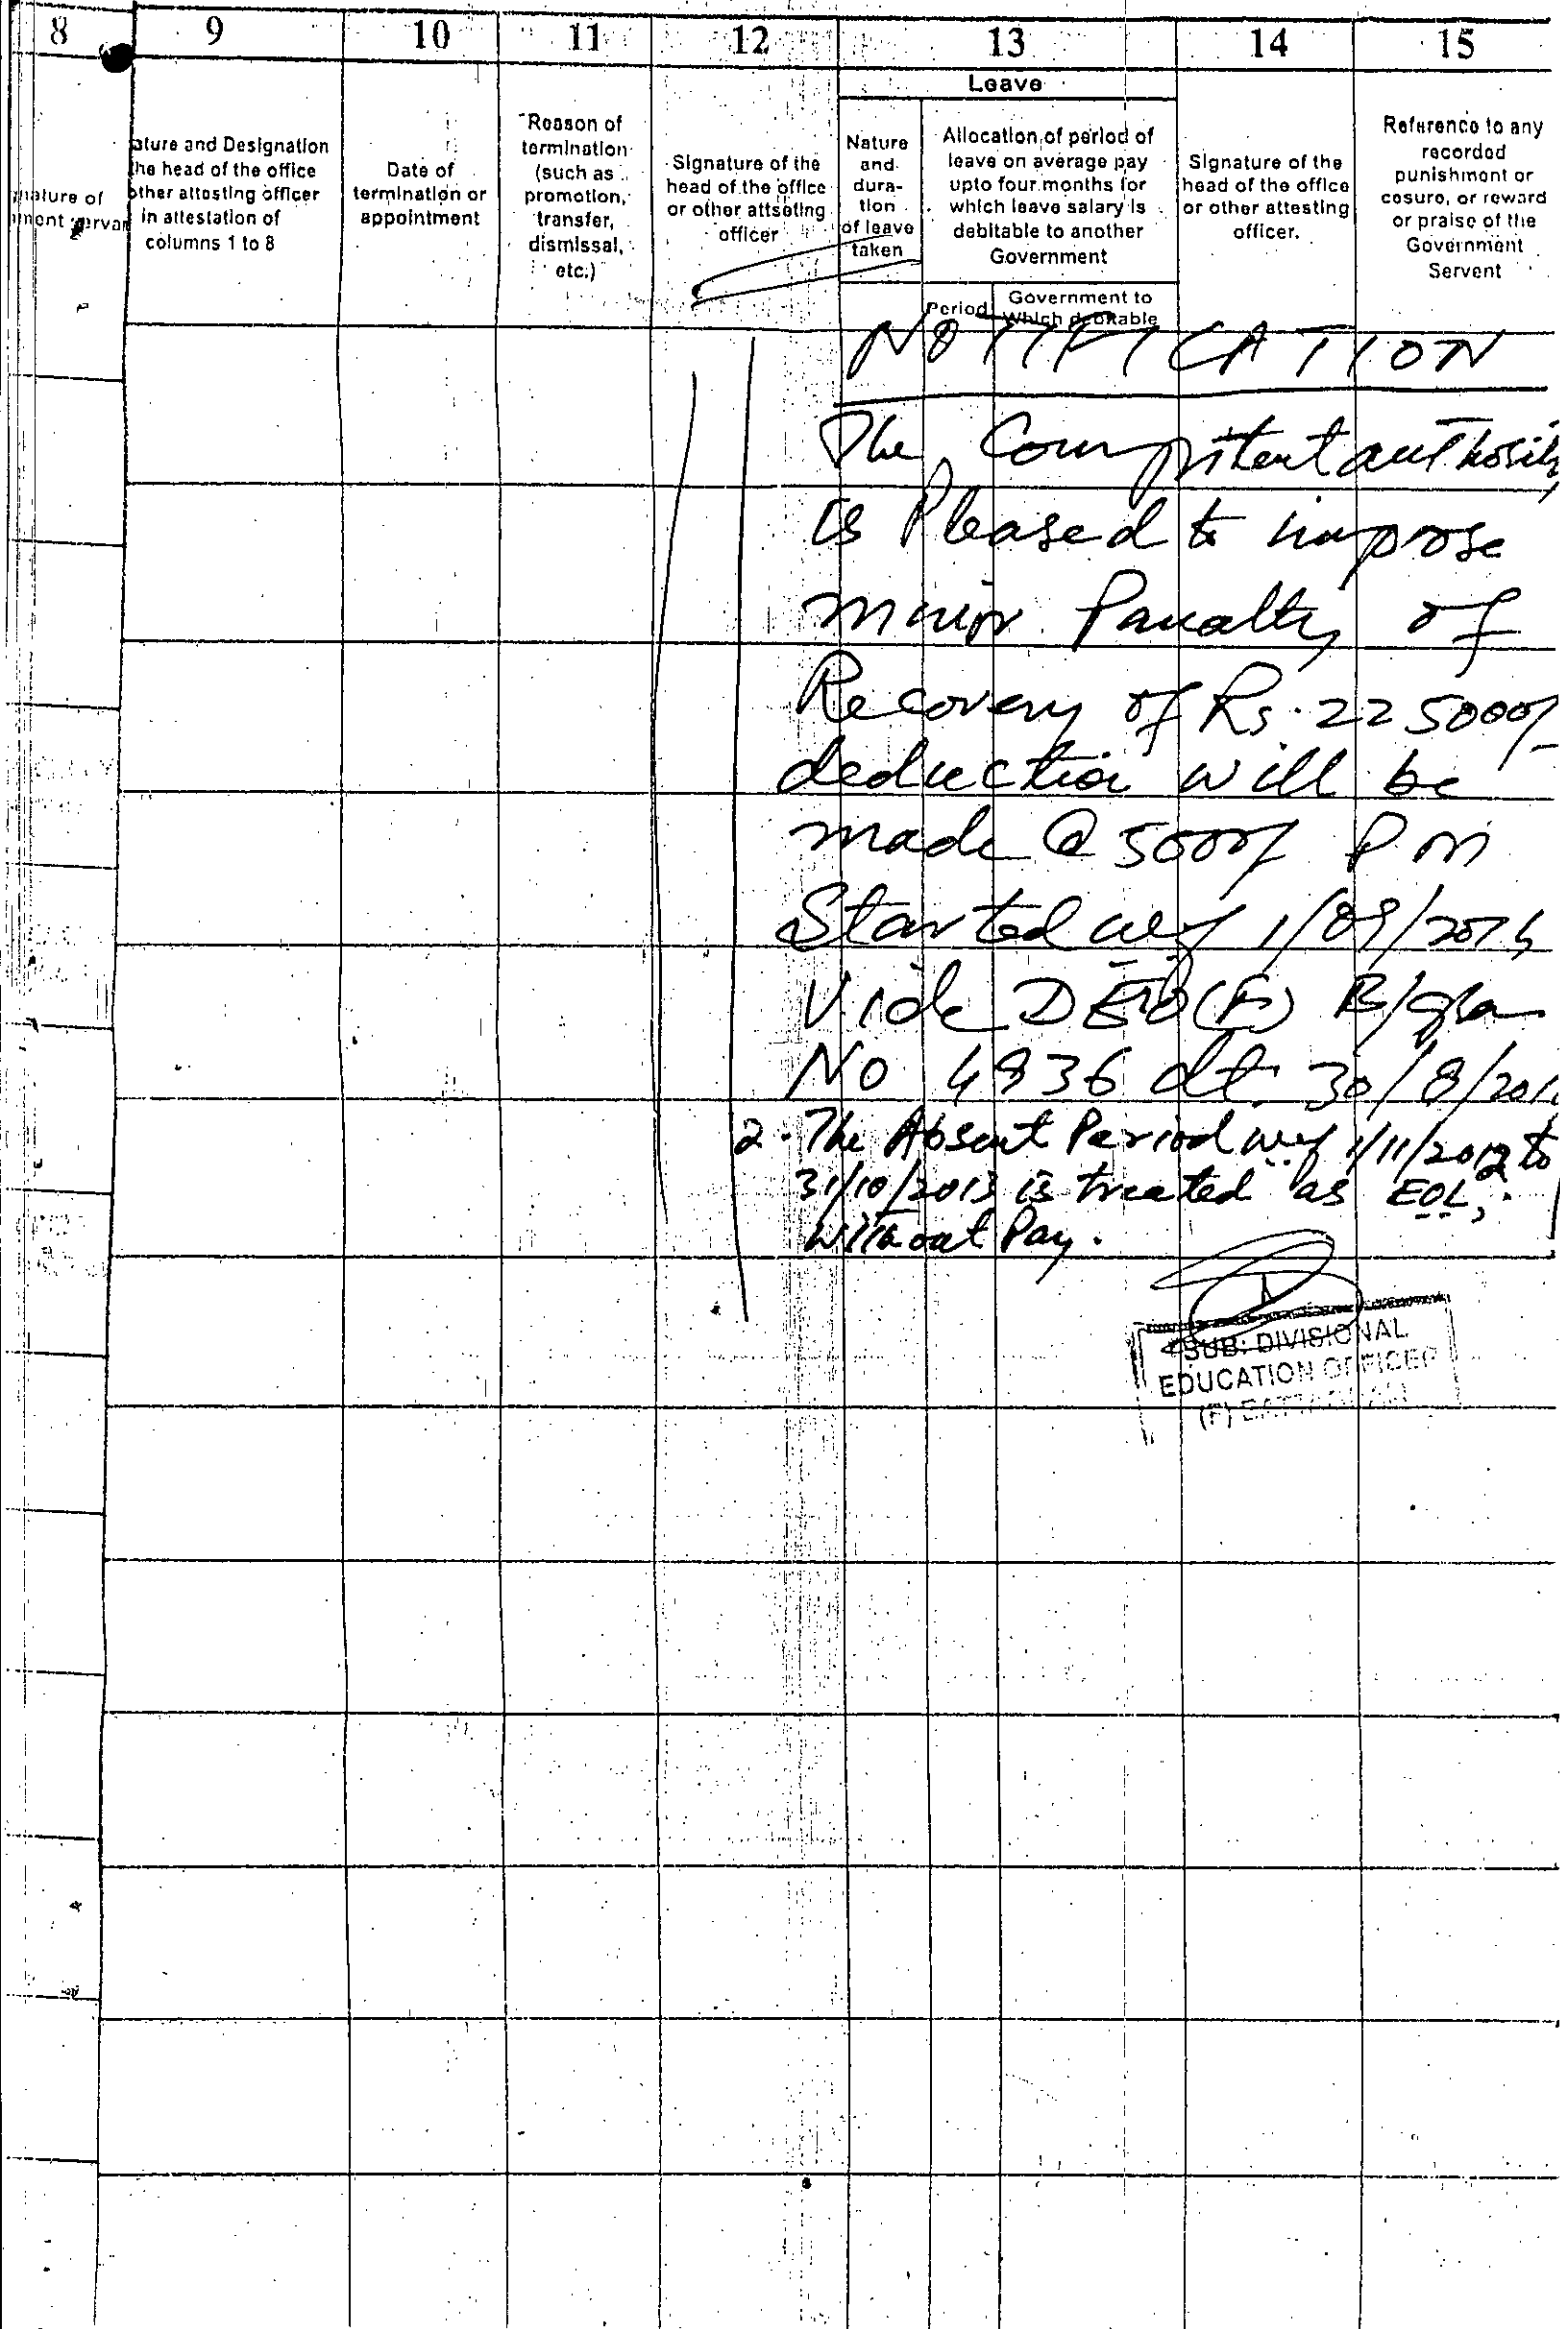 8 9 10 11 12 13 14 15
Leave
ature and Designation
he head of the office
other attesting officer
in attestation of
columns 1 to 8
nature of
ment servan
Date of
termination or
appointment
Reason of
termination
(such as
promotion,
transfer,
dismissal,
etc.)
Signature of the
head of the office
or other attseting
officer
Nature
and
dura-
tion
of leave
taken
Allocation of period of
leave on average pay
upto four months for
which leave salary is
debitable to another
Government
Period
Government to
Which debitable
Signature of the
head of the office
or other attesting
officer.
Reference to any
recorded
punishment or
cosure, or reward
or praise of the
Government
Servent
NOTIFICATION
The Compitent authority
is Pleased to impose
minor Panalty of
Recovery of Rs. 225000/-
deduction will be
made @ 5000/ Pm
Started wef 1/09/
Vide DEO (F) B/gram
No 4936 dt. 30/8/201
2. The Absent Period wef 1/11/2012 to
31/10/2013 is treated as EOL,
without Pay.
SUB: DIVISIONAL
EDUCATION OFFICER
(F)